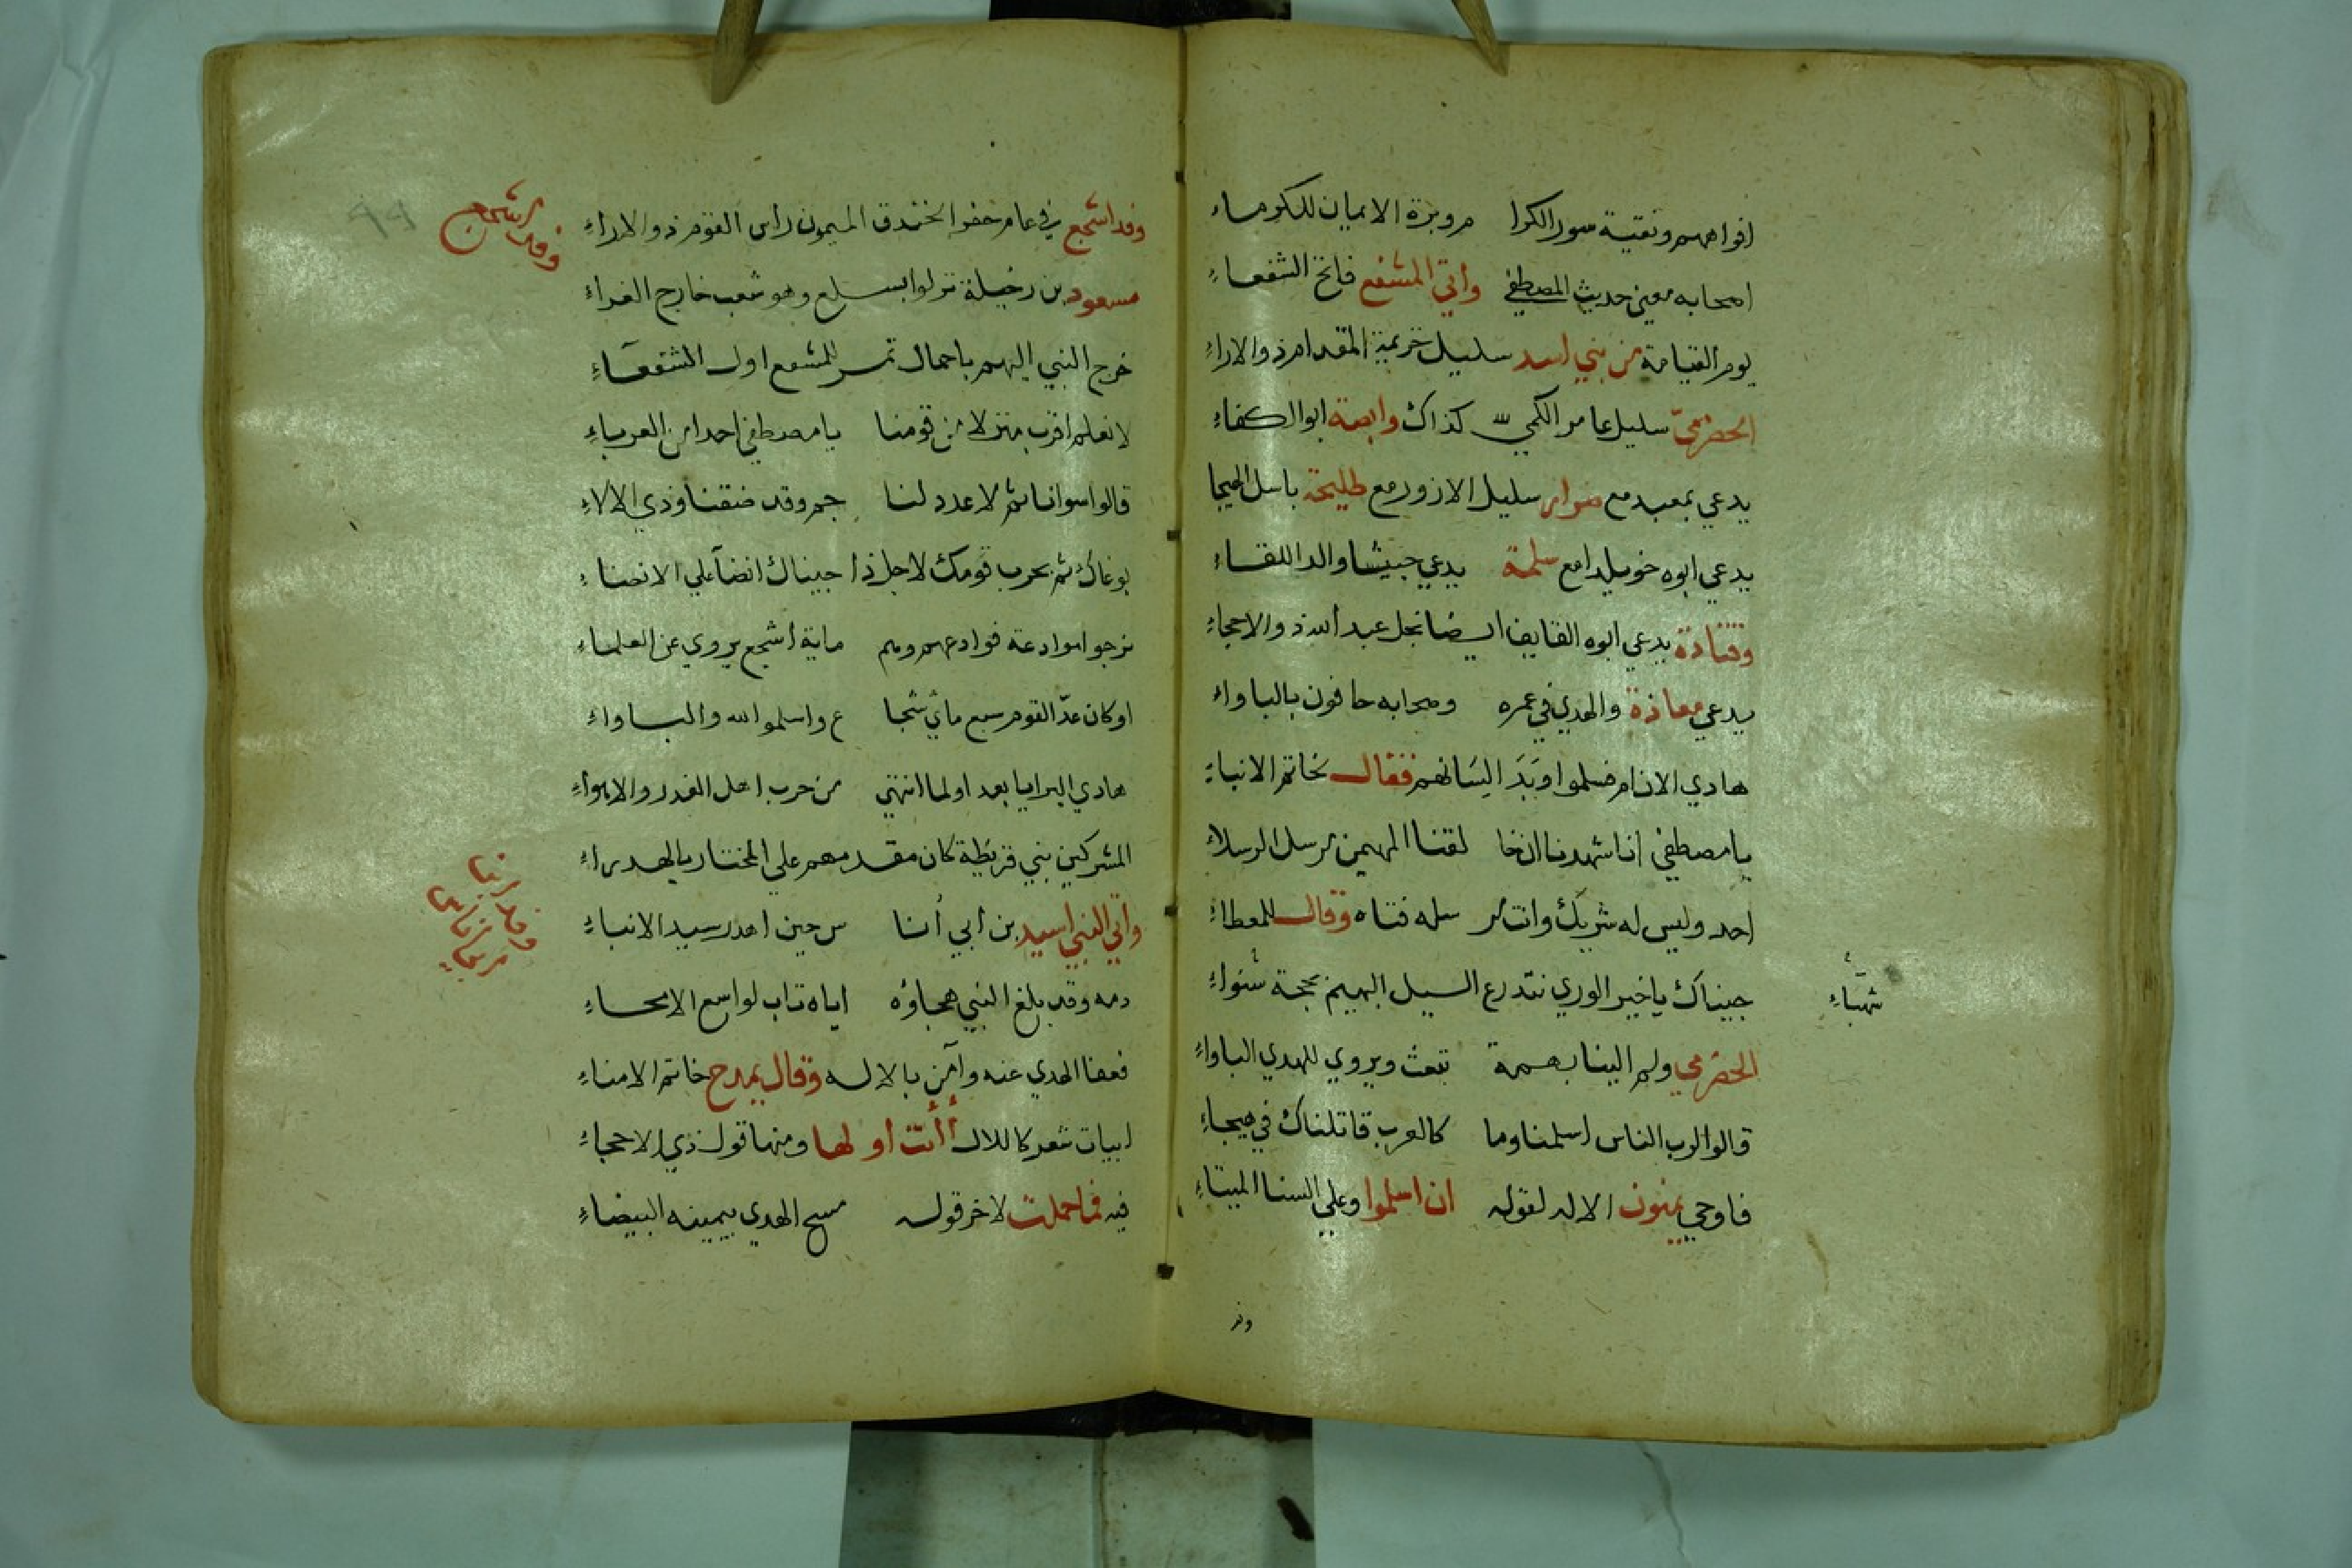 افواههم ونقية سور الكرا مروبزة الايمان للكرماء
اصحابه معين حديث المصطفي واتي المشفع فاتح الشفعاء
يوم القيامة من بني اسد سليل خزيمة المقدام ذو الاراء
الحضرمي سليل عامر الكمي كذاك وابصة ابو الكفاء
يدعي بمعبد مع ضرار سليل الازور مع طليحة باسل الهيجا
يدعي ابوه خويلدا مع سلمة يدعي حبيشا والد اللقاء
وقتادة يدعي ابوه القايف ايضا نجل عبد الله ذو الاحجاء
يدعي معاذة والهدي في عمره وصحابه حافون بالباواء
هادي الانام فسلموا وبدا لسانهم فقال لخاتم الانباء
يا مصطفي انا شهدنا ان خا لقنا المهيمن مرسل الرسلاء
احد وليس له شريك وانت مر سله فتاه وقال للمعطاء
جيناك يا خير الوري نتدرع السيل البهيم بحجة شنواء
شهباء
الحضرمي ولم الينا بهمة تبعث ويروي للهدي الباواء
قالوا لرب الناس اسلمنا وما كالعرب قاتلناك في هيجاء
فاوحي يمنون الاله لقوله ان اسلموا وعلي السنا الميتاء
وفد
وفد اشجع في عام حفر الخندق الميمون راس القوم ذو الاراء
وفد اشجع
مسعود بن رخيلة نزلوا بسلع وهو شعب خارج الغراء
خرج النبي اليهم باحمال تمر المشفع اول الشفعاء
لا نعلم اقرب منزلا من قومنا يا مصطفي احدا من العرباء
قالوا سوانا ثم لا عدد لنا جم وقد ضقنا وذي الالاء
بوغاك ثم بحرب قومك لاجل ذا جيناك انضآ علي الانضاء
نرجوا موادعة فوادعهم وهم ماية اشجع يروي عن العلماء
او كان عد القوم سبع ماي شجا ع واسلموا لله والباواء
هادي البرايا بعد اولما انتهي من حرب اهل الغدر والاهواء
المشركين بني قريظة كان مقدمهم علي المختار بالهدراء
واتي النبي اسيد بن ابي أنا س حين اهدر سيد الانباء
دمه وقد بلغ النبي هجاؤه اياه تاب لواسع الامحاء
فعفا الهدي عنه وآمن بالاله وقال يمدح خاتم الامناء
ابيات شعر كاللال أأنت او لها ومنها قول ذي الاحجاء
فيه فما حملت لاخر قوله مسح الهدي بيمينه البيضاء